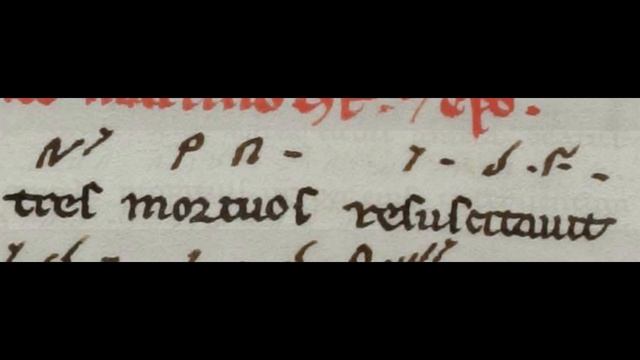 tres mortuos resuscitauit